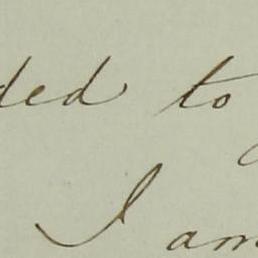 ded to
I am